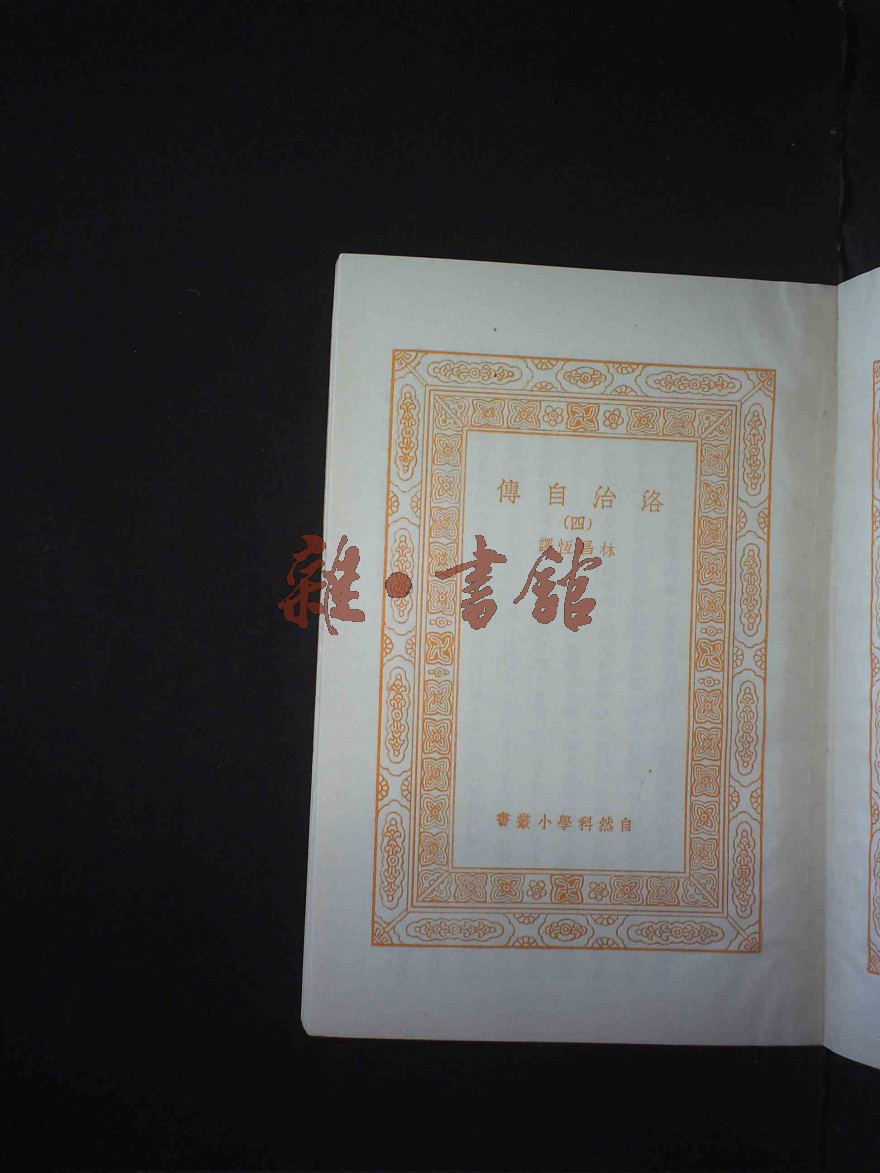 洛治自傳
(四)
林昌恆譯
雜·書館
自然科學小叢書